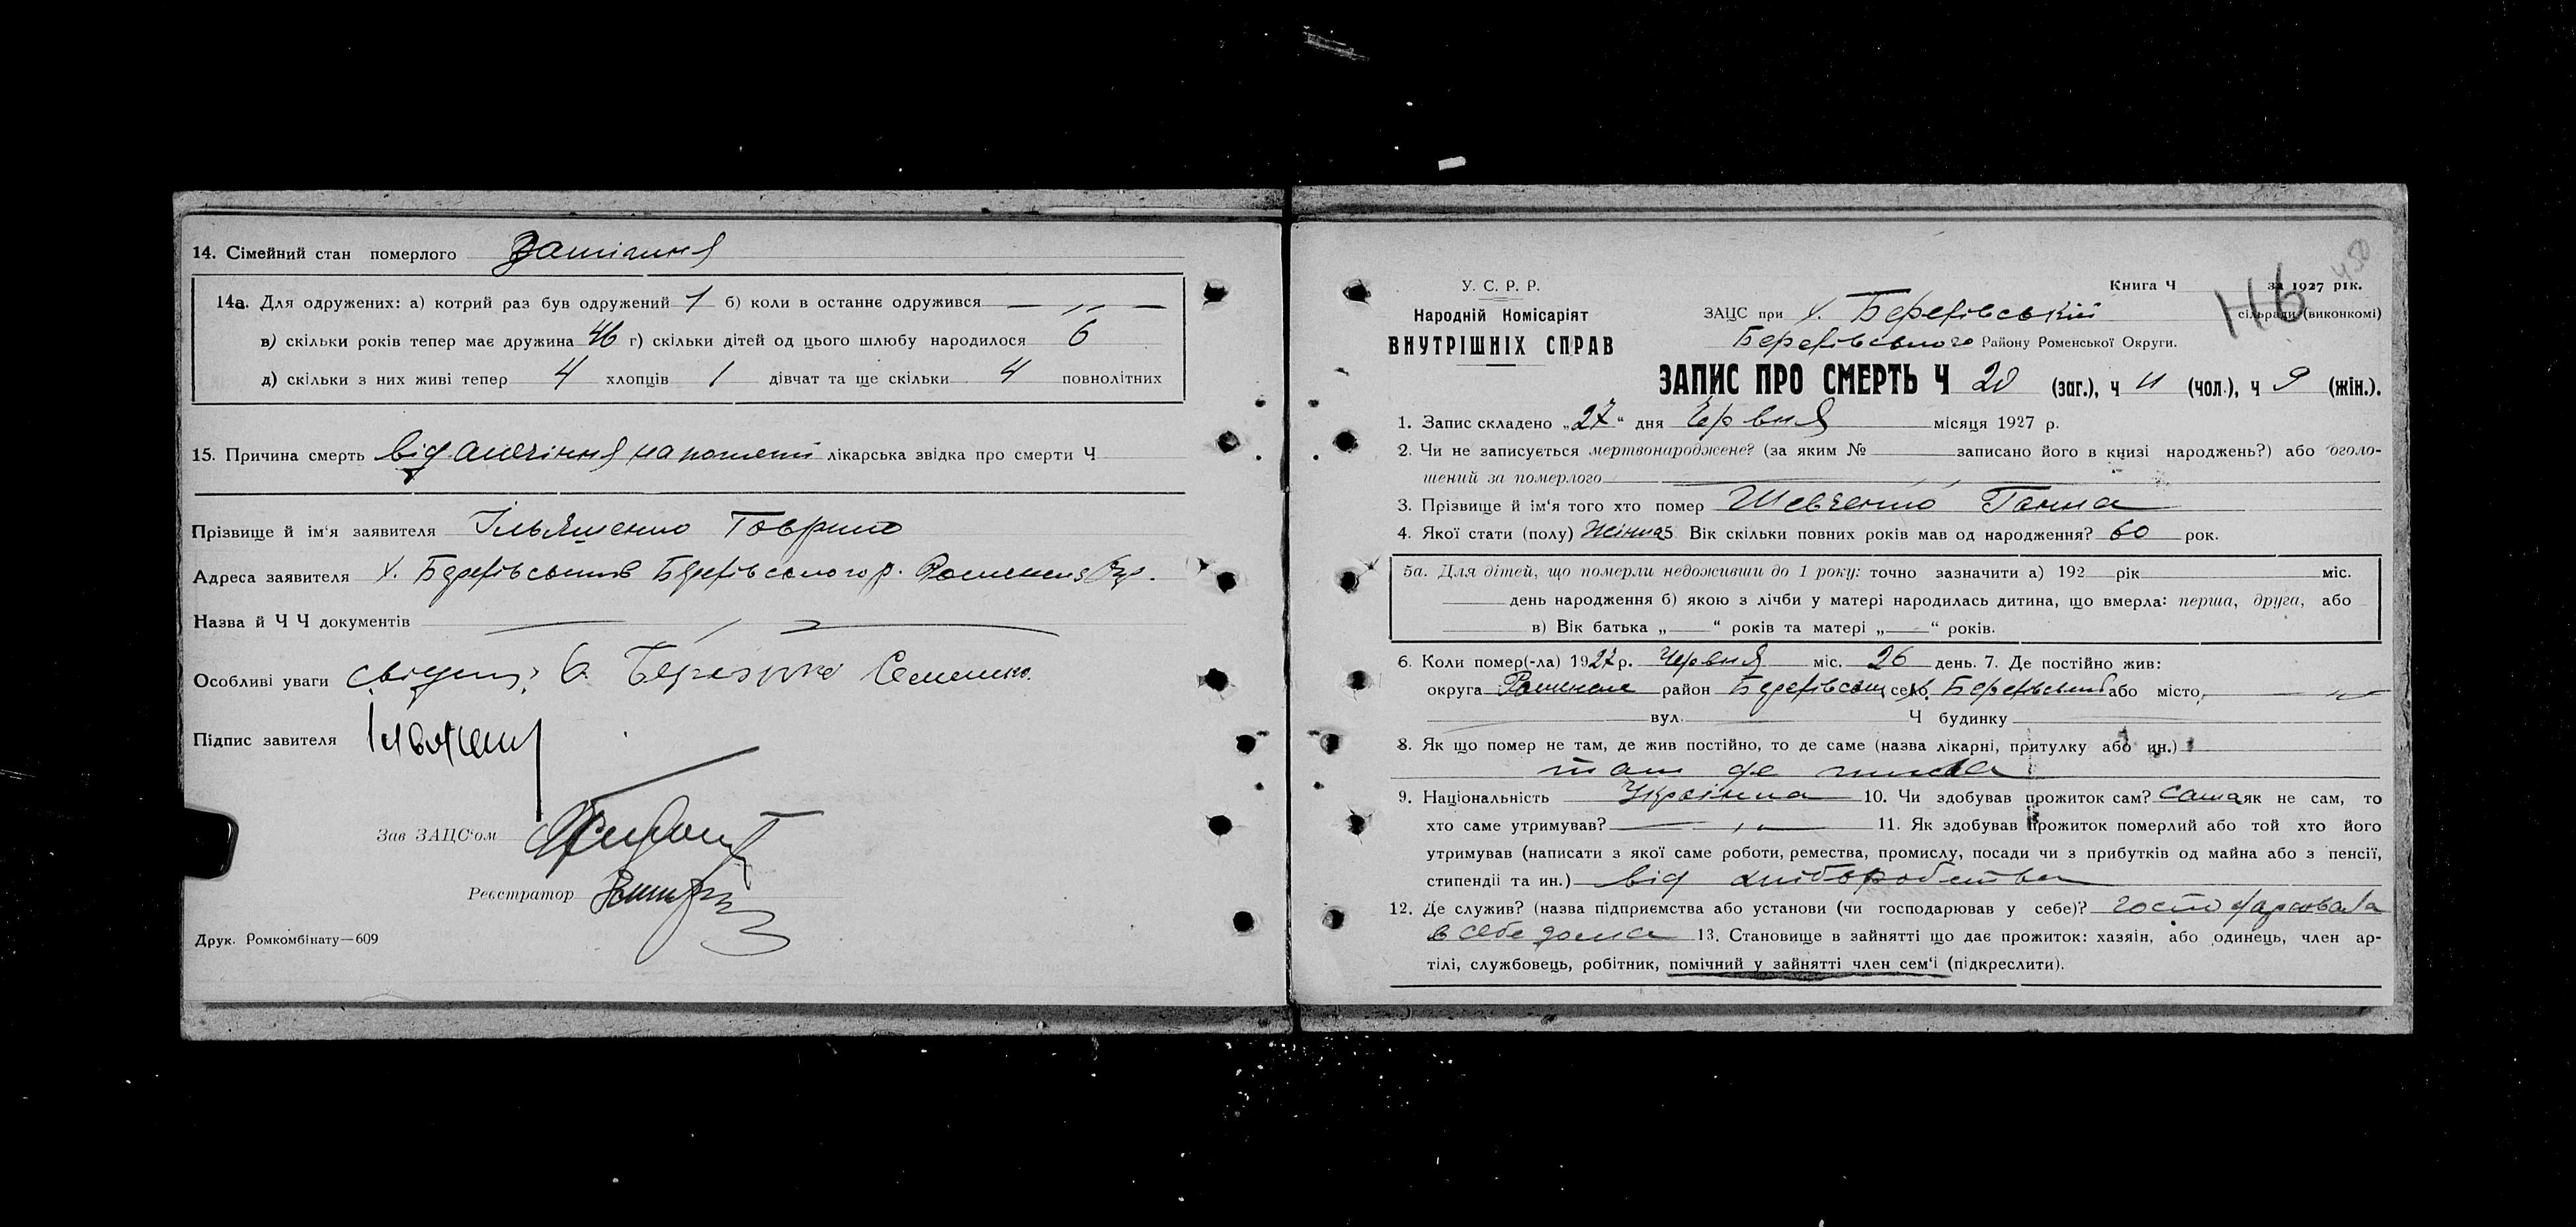 14. Сімейний стан померлого Заміжня
14а. Для одружених: а) котрий раз був одружений 1 б) коли в останнє одружився — „ —
в) скільки років тепер має дружина 46 г) скільки дітей од цього шлюбу народилося 6
д) скільки з них живі тепер 4 хлопців 1 дівчат та ще скільки 4 повнолітних
15. Причина смерть від лікарська звідка про смерти Ч
Прізвище й ім'я заявителя Ільяшенко Гаврило
Адреса заявителя х. Берегівського р. Роменськ. Окр.
Назва й Ч Ч документів
Особливі уваги
Підпис завителя
Зав ЗАЦС'ом
Реєстратор
Друк. Ромкомбінату—609
450
Книга Ч за 1927 рік.
Нб
У. С. Р. Р.
Народній Комісаріят
ВНУТРІШНІХ СПРАВ
ЗАЦС при х. Берегівській сільради (виконкомі)
Берегівського Району Роменської Округи.
ЗАПИС ПРО СМЕРТЬ Ч 20 (заг.), ч 11 (чол.), ч 9 (жін.).
1. Запис складено „27" дня Червня місяця 1927 р.
2. Чи не записується мертвонароджене? (за яким № записано його в книзі народжень?) або оголо-
шений за померлого
3. Прізвище й ім'я того хто помер Шевченко Ганна
4. Якої стати (полу) Жіноча 5. Вік скільки повних років мав од народження? 60 рок.
5а. Для дітей, що померли недоживши до 1 року: точно зазначити а) 192 рік міс.
день народження б) якою з лічби у матері народилась дитина, що вмерла: перша, друга, або
в) Вік батька „ " років та матері „ " років.
6. Коли помер(-ла) 1927 р. Червня міс. 26 день. 7. Де постійно жив:
округа Роменська район Берегівськ село або місто
вул. Ч будинку
8. Як що помер не там, де жив постійно, то де саме (назва лікарні, притулку або ин.)
там де жила
9. Національність Українка 10. Чи здобував прожиток сам? сама як не сам, то
хто саме утримував? — „ — 11. Як здобував прожиток померлий або той хто його
утримував (написати з якої саме роботи, ремества, промислу, посади чи з прибутків од майна або з пенсії,
стипендії та ин.) від хліборобства
12. Де служив? (назва підприємства або установи (чи господарював у себе)? господарювала
в себе дома 13. Становище в зайнятті що дає прожиток: хазяін, або одинець, член ар-
тілі, службовець, робітник, помічний у зайнятті член сем'ї (підкреслити).